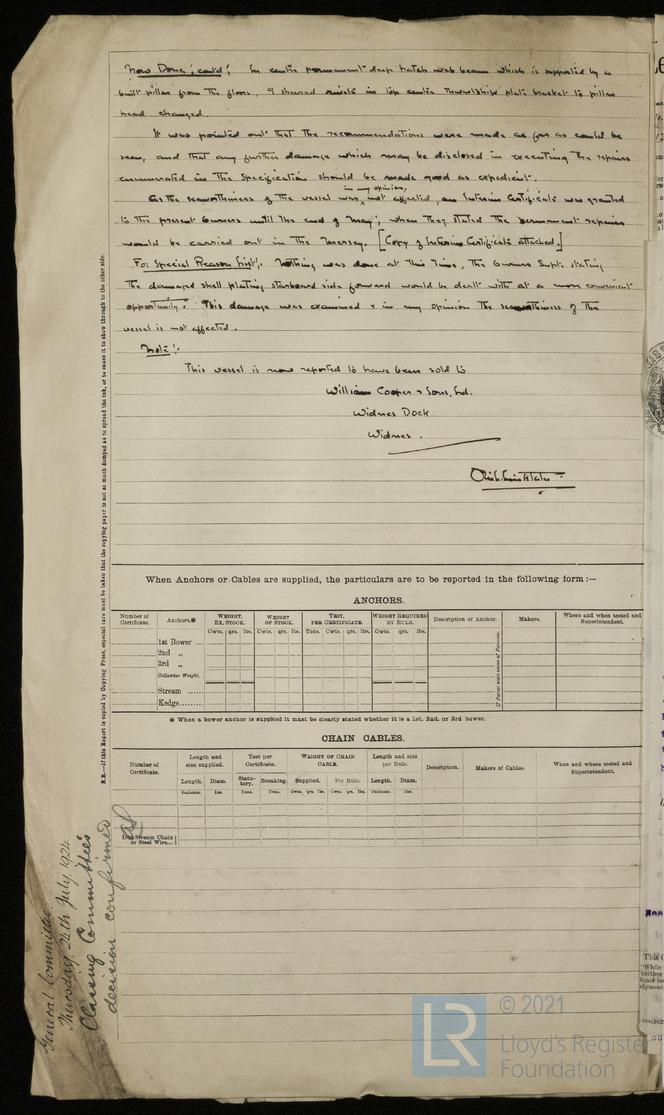 Now Done; contd: In centre permanent deep hatch web beam which is supported by a
built pillar from the floor, 9 sheared rivets in top centre thwartship plate bracket to pillar
head changed.
It was pointed out that the recommendations were made as far as could be
seen, and that any further damage which may be disclosed in executing the repairs
enumerated in the Specification should be made good as expedient.
in my opinion,
As the seaworthiness of the vessel was not affected, an Interim Certificate was granted
to the present Owners until the end of May, when they stated the permanent repairs
would be carried out in the Mersey. [Copy of Interim Certificate attached.]
For Special Reason List: Nothing was done at this time, the Owners Supt. stating
the damaged shell plating starboard side forward would be dealt with at a more convenient
opportunity. This damage was examined & in my opinion the seaworthiness of the
vessel is not affected.
Note:
This vessel is now reported to have been sold to
William Cooper & Sons, Ltd.
Widnes Dock
Widnes.
When Anchors or Cables are supplied, the particulars are to be reported in the following form:—
ANCHORS.
Number of Certificate. Anchors.* WEIGHT. EX. STOCK. WEIGHT OF STOCK. TEST, PER CERTIFICATE. WEIGHT REQUIRED BY RULE. Description of Anchor. Makers. Where and when tested and Superintendent.
Cwts. qrs. lbs. Cwts. qrs. lbs. Tons. Cwts. qrs. lbs. Cwts. qrs. lbs.
1st Bower ...
2nd „
3rd „
Collective Weight.
Stream ......
Kedge.........
* When a bower anchor is supplied it must be clearly stated whether it is a 1st, 2nd, or 3rd bower.
CHAIN CABLES.
Number of Certificate. Length and size supplied. Test per Certificate. WEIGHT OF CHAIN CABLE. Length and size per Rule. Description. Makers of Cables. When and where tested and Superintendent.
Length. Diam. Statutory. Breaking. Supplied. Per Rule. Length. Diam.
Fathoms. Ins. Tons. Tons. Cwts. qrs. lbs. Cwts. qrs. lbs. Fathoms. Ins.
Stream Chain
or Steel Wire...
N.B.—If this Report is copied by Copying Press, especial care must be taken that the copying paper is not so much damped as to spread the ink, or to cause it to show through to the other side.
General Committee
Thursday 24th July 1924
Classing Committee's
decision confirmed
© 2021
LR Lloyd's Registe
Foundation